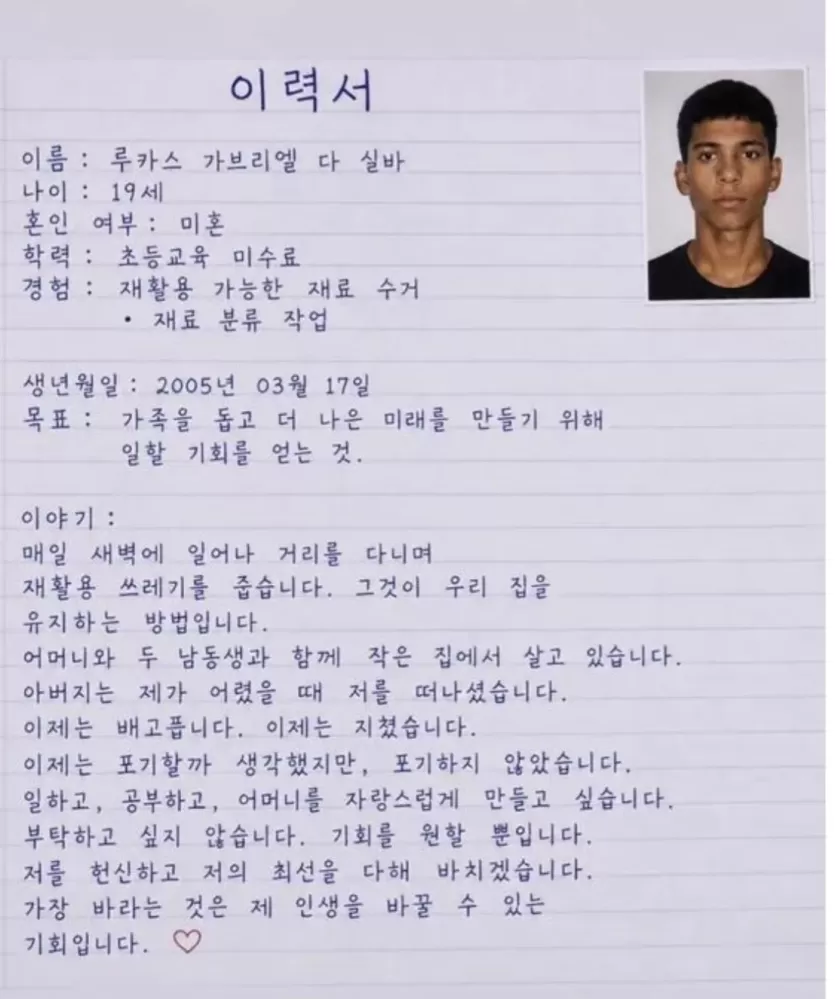 이력서
이름 : 루카스 가브리엘 다 실바
나이 : 19세
혼인 여부 : 미혼
학력 : 초등교육 미수료
경험 : 재활용 가능한 재료 수거
• 재료 분류 작업
생년월일 : 2005년 03월 17일
목표 : 가족을 돕고 더 나은 미래를 만들기 위해
일할 기회를 얻는 것.
이야기 :
매일 새벽에 일어나 거리를 다니며
재활용 쓰레기를 줍습니다. 그것이 우리 집을
유지하는 방법입니다.
어머니와 두 남동생과 함께 작은 집에서 살고 있습니다.
아버지는 제가 어렸을 때 저를 떠나셨습니다.
이제는 배고픕니다. 이제는 지쳤습니다.
이제는 포기할까 생각했지만, 포기하지 않았습니다.
일하고, 공부하고, 어머니를 자랑스럽게 만들고 싶습니다.
부탁하고 싶지 않습니다. 기회를 원할 뿐입니다.
저를 헌신하고 저의 최선을 다해 바치겠습니다.
가장 바라는 것은 제 인생을 바꿀 수 있는
기회입니다. ♡